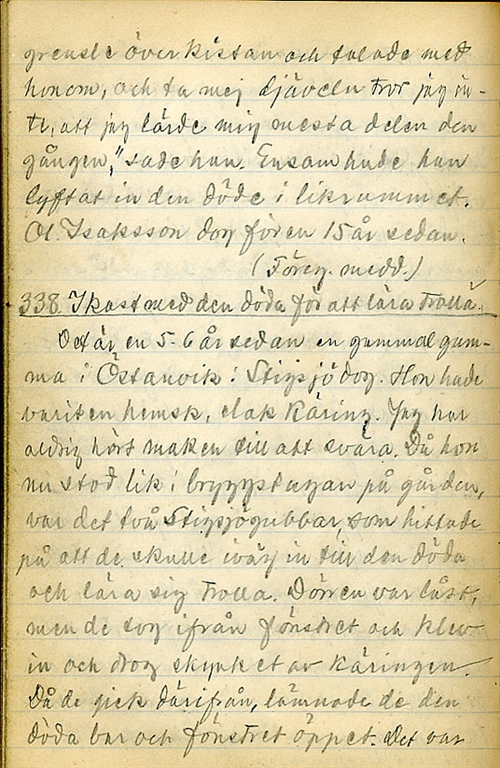 grensle över kistan och talade med
honom, och ta mej djäveln tror jag in-
te, att jag lärde mig mesta delen den
gången," sade han. Ensam hade han
lyftat in den döde i likrummet.
Ol. Isaksson dog för en 15 år sedan.
(Föreg. medd.)
338. I kast med den döda för att lära trolla.
Det är en 5-6 år sedan en gammal gum-
ma i Östanvik i Stigsjö dog. Hon hade
varit en hemsk, elak käring. Jag har
aldrig hört maken till att svära. Då hon
nu stod lik i bryggstugan på gården,
var det två Stigsjögubbar, som hittade
på att de skulle iväg in till den döda
och lära sig trolla. Dörren var låst,
men de tog ifrån fönstret och klev
in och drog skynket av käringen.
Då de gick därifrån, lämnade de den
döda bar och fönstret öppet. Det var